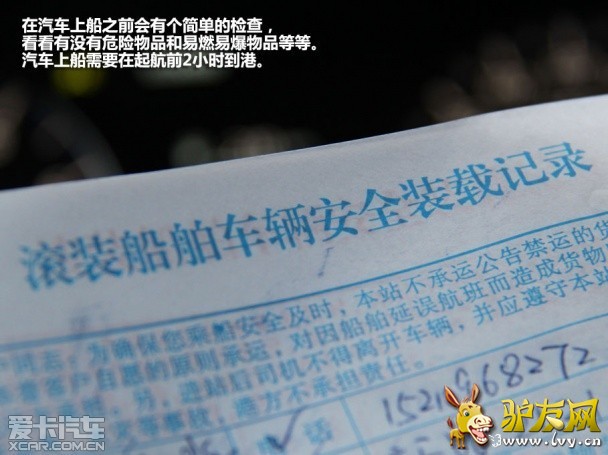 在汽车上船之前会有个简单的检查，
看看有没有危险物品和易燃易爆物品等等。
汽车上船需要在起航前2小时到港。
滚装船舶车辆安全装载记录
为确保您乘船安全及时，本站不承运公告禁运的货
客户自愿的原则承运，对因船舶延误航班而造成货物
进站后司机不得离开车辆，并应遵守本站
方不承担责任。
爱卡汽车
XCAR.COM.CN
驴友网
www.lvy.cn